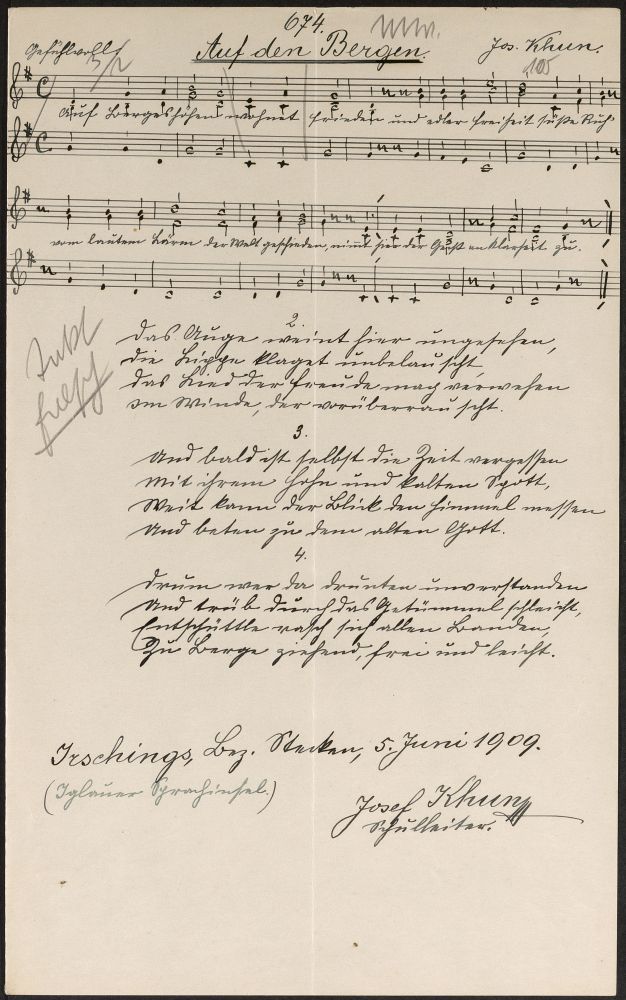 674.
Gefühlvoll
Auf den Bergen.
Jos. Khun.
105
Auf Bergeshöhen wohnet Frieden und edler Freiheit süße Ruh'
vom lauten Lärm der Welt geschieden, nimmt hier der Geist an Klarheit zu.
2.
Das Auge weint hier ungesehen,
die Lippe klaget unbelauscht,
das Lied der Freude mag verwehen
im Winde, der vorüberrauscht.
3.
Und bald ist selbst die Zeit vergessen
Mit ihrem Hohn und kalten Spott,
Weit kann der Blick den Himmel messen
Und beten zu dem alten Gott.
4.
Drum wer da drunten unverstanden
Und trüb durch das Getümmel schleicht,
Entschüttle rasch sich allen Banden,
Zu Berge ziehend, frei und leicht.
Irschings, Bez. Stecken, 5. Juni 1909.
(Iglauer Sprachinsel.)
Josef Khun
Schulleiter.